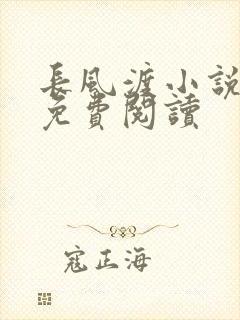 長風渡小說
免費閱讀
寇正海